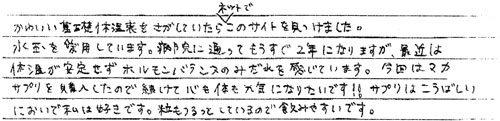 ネットで
かわいい基礎体温表をさがしていたらこのサイトを見つけました。
水玉を愛用しています。病院に通ってもうすぐ2年になりますが、最近は
体温が安定せずホルモンバランスのみだれを感じています。今回はマカ
サプリを購入したので続けて心も体も元気になりたいです!!サプリはこうばしい
においで私は好きです。粒もつるっとしているので飲みやすいです。